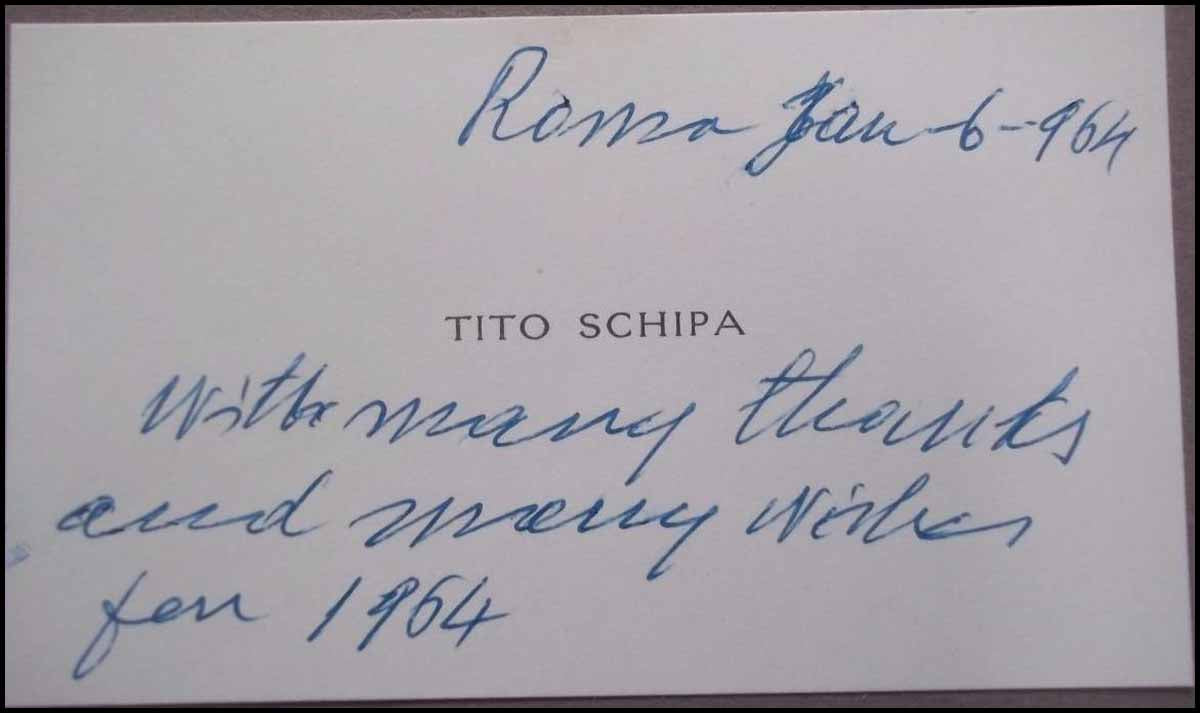 Roma Jan-6-964
TITO SCHIPA
With many thanks
and many wishes
for 1964